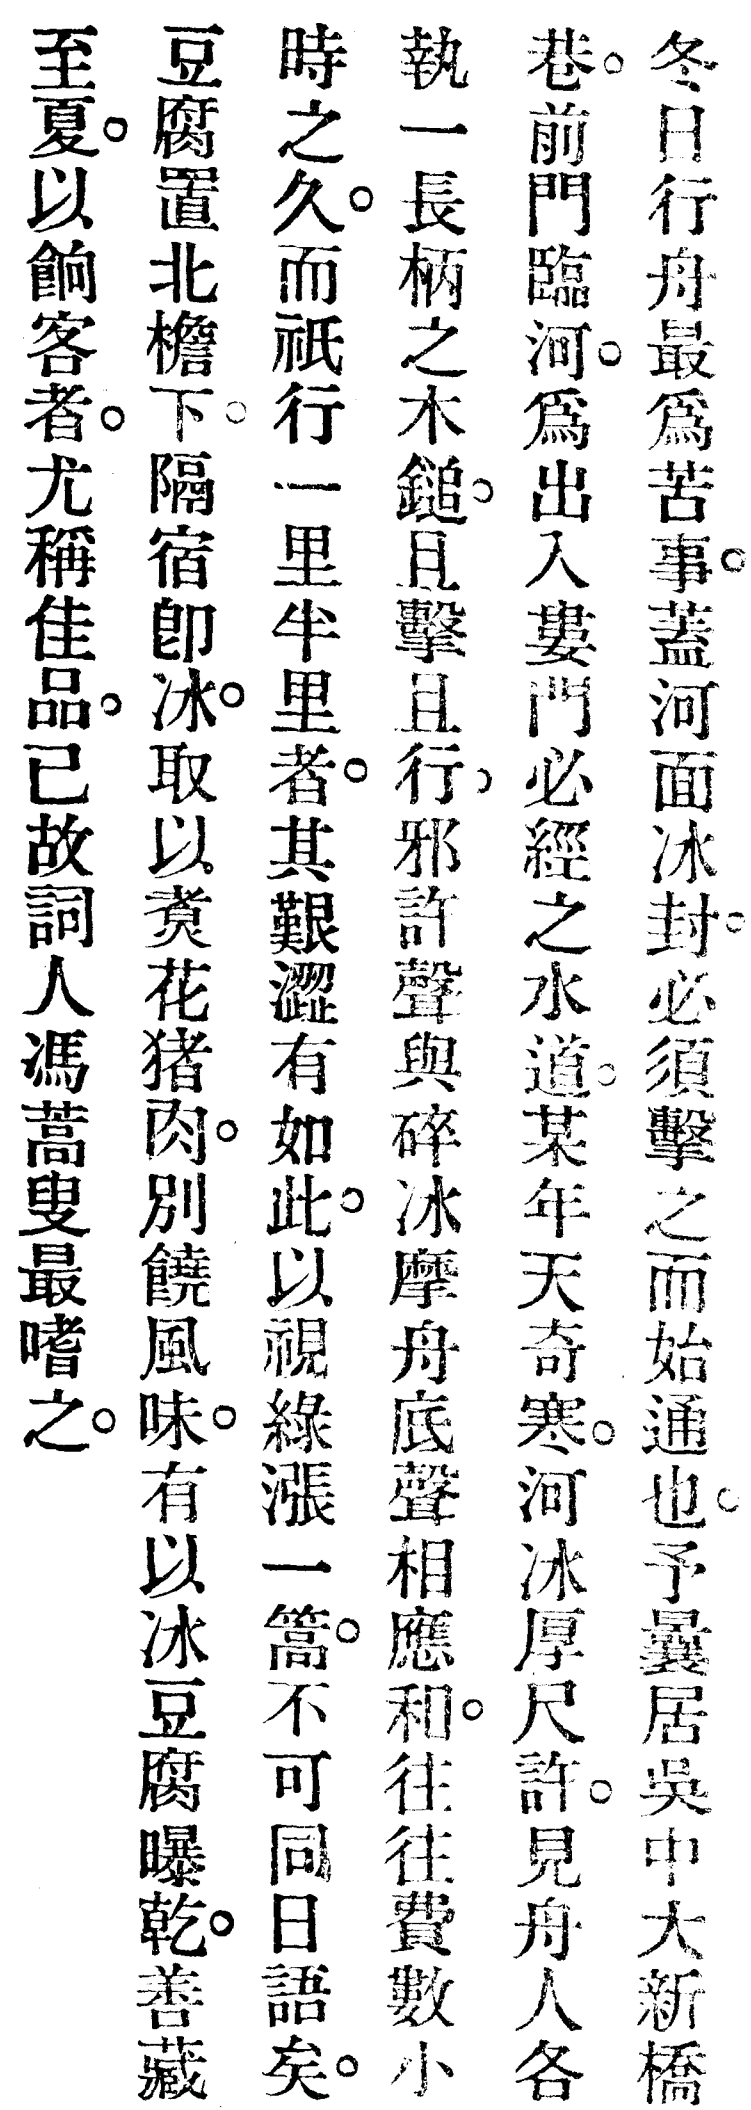 冬日行舟最爲苦事。蓋河面冰封。必須擊之而始通也。予曩居吳中大新橋
巷。前門臨河。爲出入婁門必經之水道。某年天奇寒。河冰厚尺許。見舟人各
執一長柄之木鎚。且擊且行。邪許聲與碎冰摩舟底聲相應和。往往費數小
時之久。而祇行一里半里者。其艱澀有如此。以視綠漲一篙。不可同日語矣。
豆腐置北檐下。隔宿卽冰。取以煑花猪肉。別饒風味。有以冰豆腐曝乾。善藏
至夏。以餉客者。尤稱佳品。已故詞人馮蒿叟最嗜之。